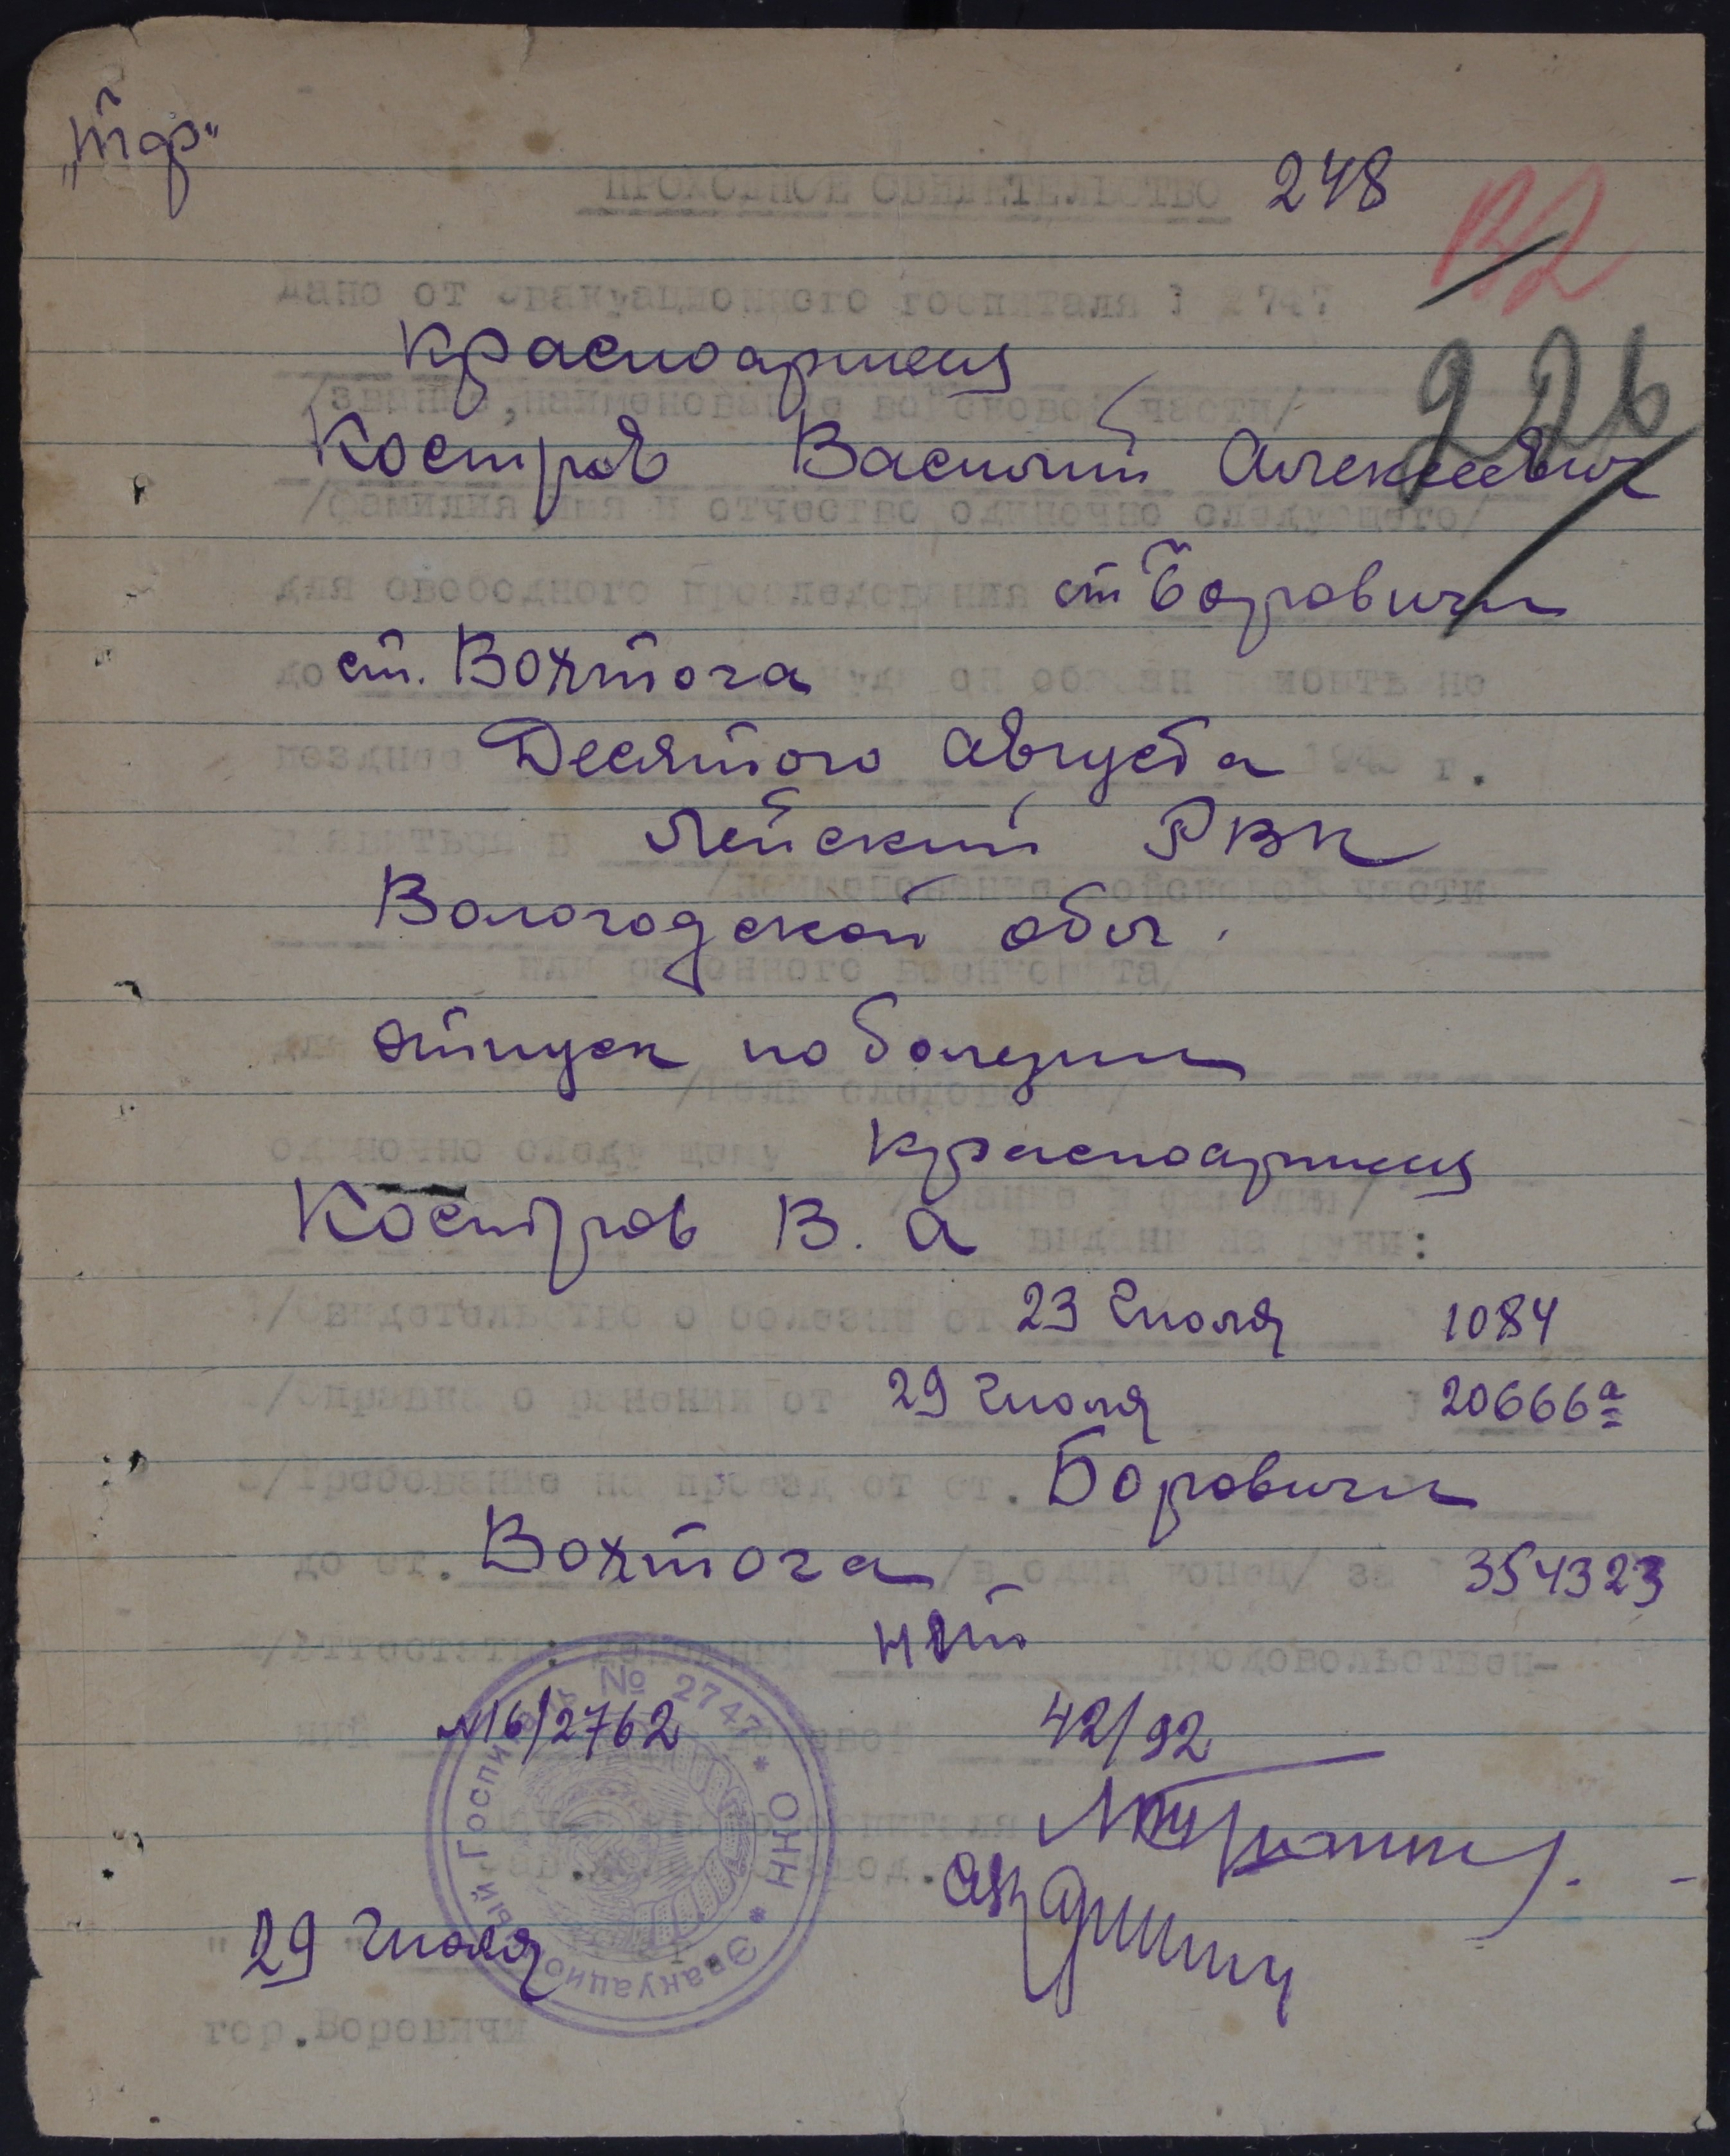 "Тдр"
ПРОХОДНОЕ СВИДЕТЕЛЬСТВО 248
дано от эвакуационного госпиталя 2747
226
красноармеец
/звание, наименование войсковой части/
Костров Василий Алексеевич
/фамилия имя и отчество, одиночно следующего/
для свободного проследования ст Боровичи
до ст. Вохтога куда он обязан пгонть не
позднее Десятого августа 194 г.
и явиться в Лейский РВК
/наименование войсковой части
Вологодской обл.
или районного военкомата/
для отпуск по болезни
/цель следования/
одиночно следующему красноармеец
/звание и фамилия/
Костров В. А выданы на руки:
1/Свидетельство о болезни от 23 Июля 1084
2/Справка о ранении от 29 Июля 20666а
3/Требование на проезд от ст. Боровичи
до ст. Вохтога /в один конец/ за 354323
4/Аттестаты: денежный нет продовольствен-
ный №16/2762 вещевой 42/92
29 Июля
гор. Боровичи
Эвакуационный Госпиталь № 2747 * НКО *